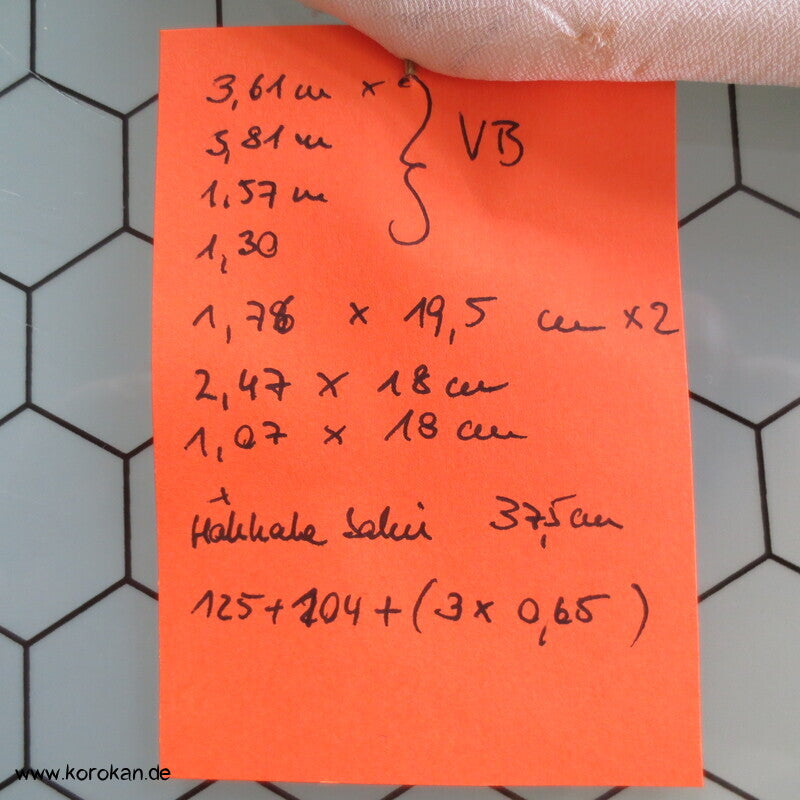 3,61 m x
5,81 m
1,57 m
1,30
VB
1,78 x 19,5 cm x2
2,47 x 18 cm
1,07 x 18 cm
x
37,5 cm
125+104+(3x 0,65 )
www.korokan.de